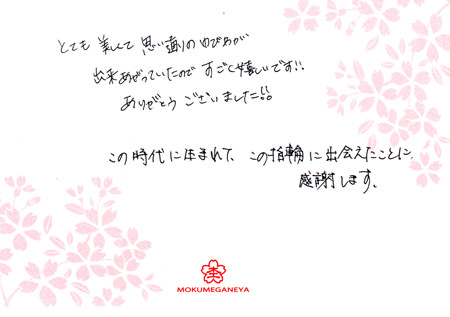 とても 美しくて 思い通りのゆびわが
出来あがっていたので すごく嬉しいです!!
ありがとう ございました!!
この時代に生まれて、この指輪に出会えたことに
感謝します。
MOKUMEGANEYA